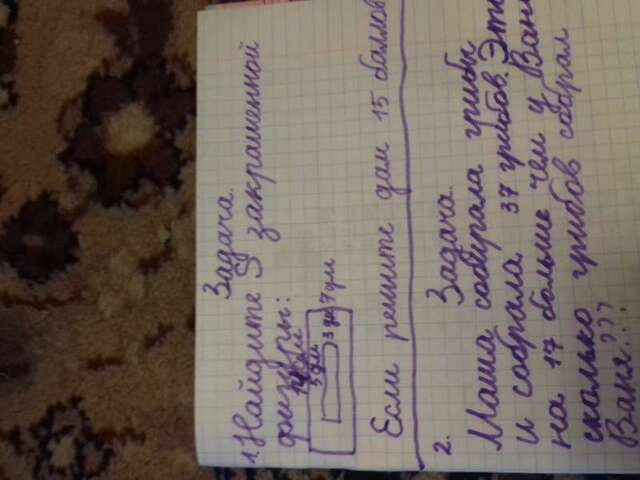 Задача.
1. Найдите S закрашенной
фигуры:
14 дм
5 дм
3 дм
7 дм
Если решите дам 15 баллов
2. Задача.
Маша собирала грибы
и собрала 37 грибов. Это
на 17 больше чем у Вани
сколько грибов собрал
Ваня???